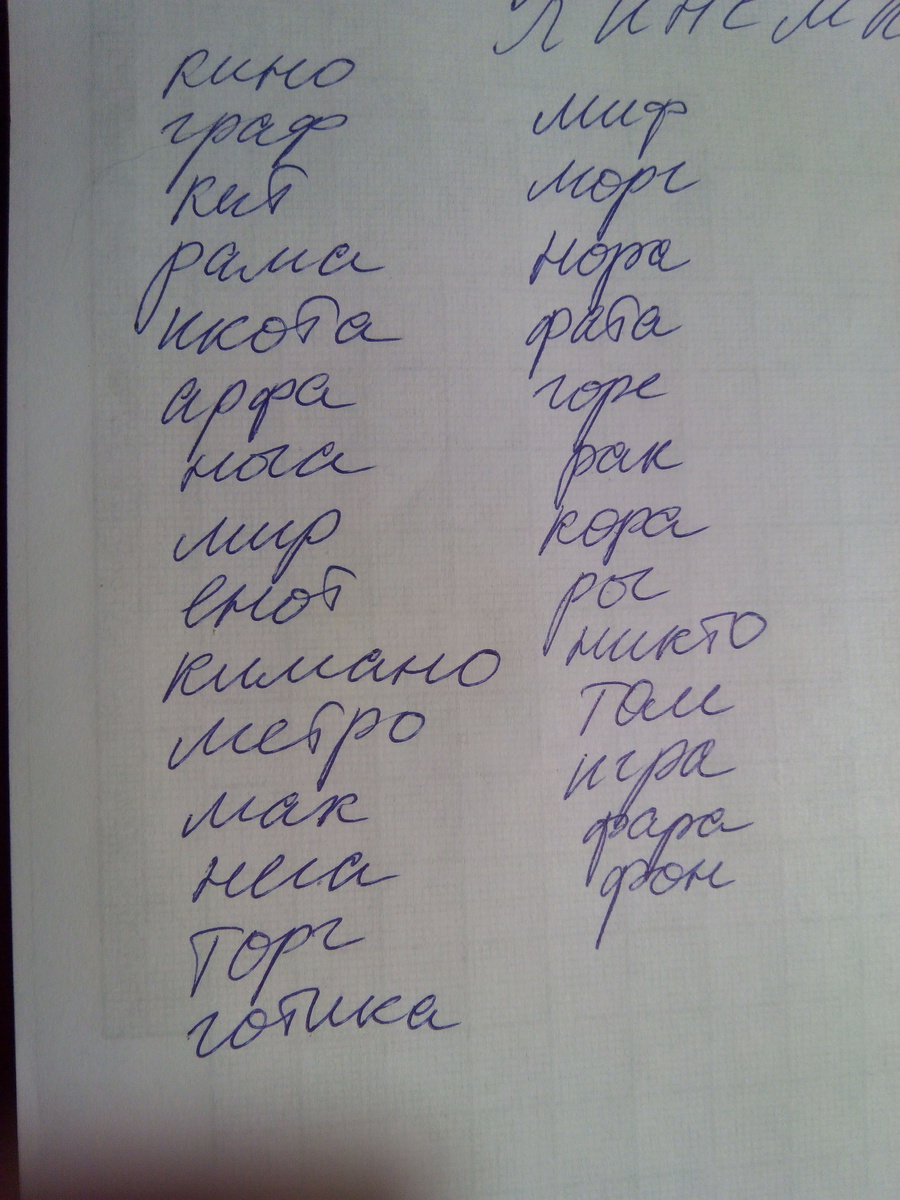 КИНЕМА
кино
граф
кит
рама
икота
арфа
нога
мир
енот
кимано
метро
мак
нега
торг
готика
миф
морг
нора
фата
горе
рак
кора
рог
никто
том
игра
фара
фон